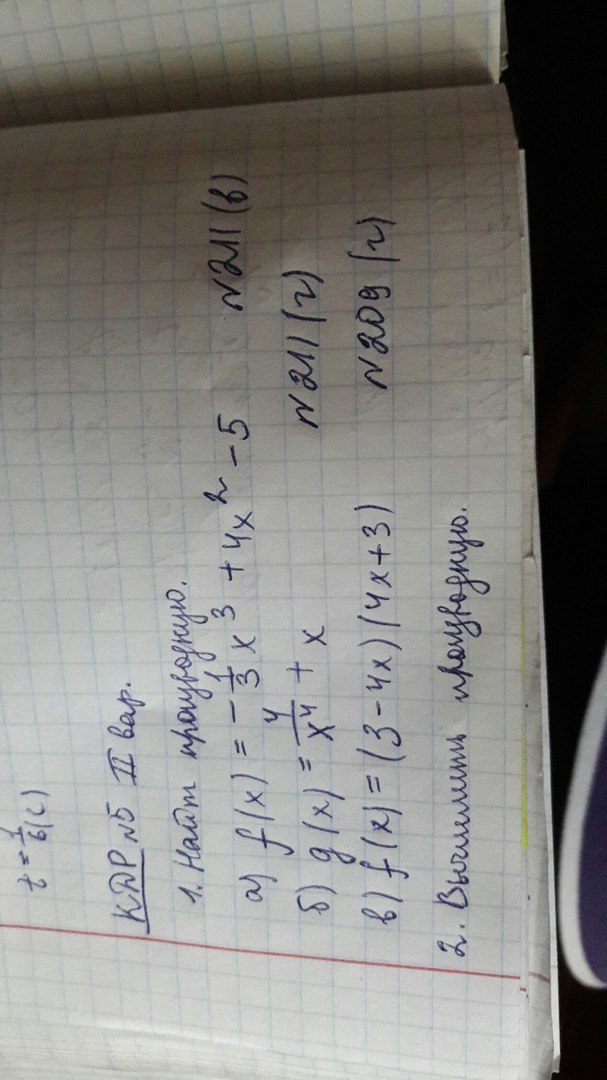 t = 1/6 (с)
КДР №5 II вар.
1. Найти производную.
а) f(x) = -1/3 x³ + 4x² - 5 №211(в)
б) g(x) = 4/x⁴ + x №211(г)
в) f(x) = (3 - 4x)(4x + 3) №209(г)
2. Вычислить производную.